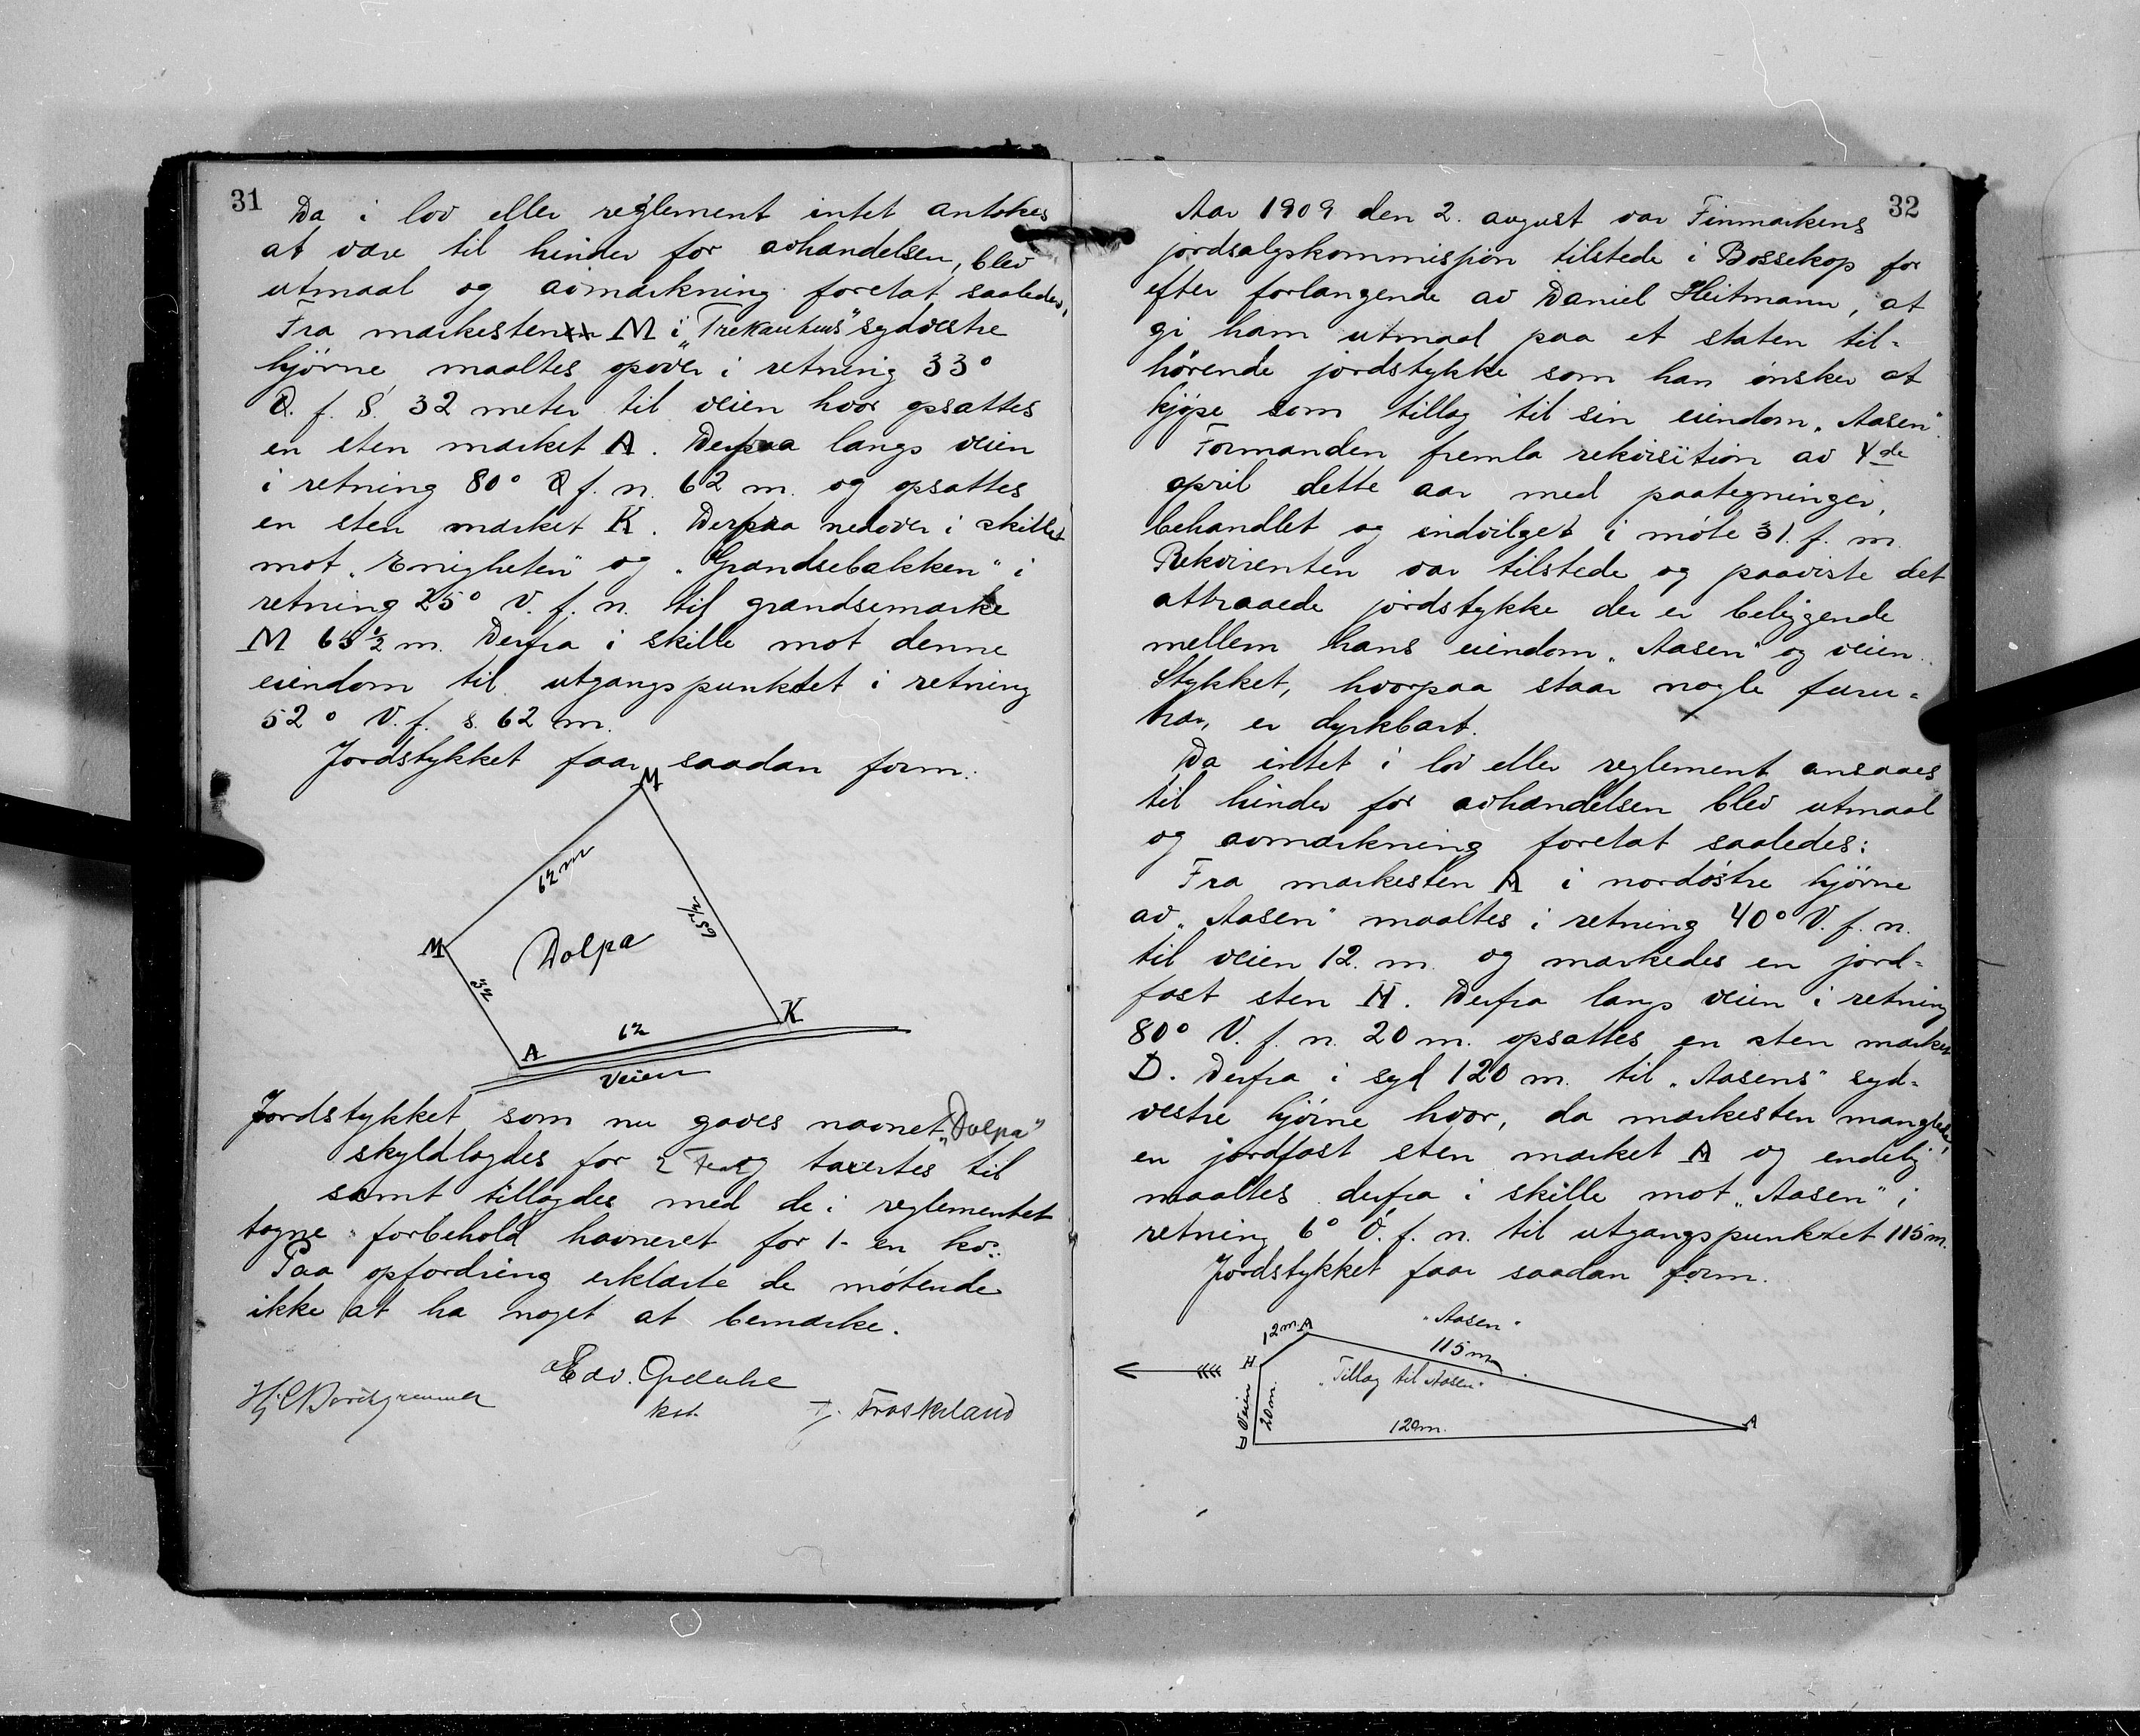 31
Da i lov eller reglement intet antokes
at være til hinder for avhændelsen, blev
utmaal og avmerkning foretat saaledes,
Fra merkesten M i "Trekantens" sydvestre
hjörne maaltes opover i retning 33°
Ö. f. S. 32 meter til veien hvor opsattes
en sten merket A. Derpaa langs veien
i retning 80° Ö f. n. 62 m. og opsattes
en sten merket K. Derpaa nedover i skillet
mot "Enigheten" og "Grændsebakken" i
retning 25° V. f. n. til grændsemerke
M 65½ m. Derfra i skille mot denne
eiendom til utgangspunktet i retning
52° V. f. s. 62 m.
Jordstykket faar saadan form:
M
62 m
65½
M
Dolpa
32
K
62
A
Veien
Jordstykket som nu gaves navnet "Dolpa"
skyldlagdes for 2 taxertes til
samt tillagdes med de i reglementet
tagne forbehold havneret for 1 - en ko.
Paa opfordring erklærte de mötende
ikke at ha noget at bemerke.
Edv.
kst.
32
Aar 1909 den 2. august var Finmarkens
jordsalgskommission tilstede i Bossekop for
efter forlangende av Daniel Heitmann, at
gi ham utmaal paa et staten til-
hörende jordstykke som han önsker at
kjöpe som tillæg til sin eiendom "Aasen".
Formanden fremla rekvisition av 4de
april dette aar med paategninger,
behandlet og indvilget i möte 31. f. m.
Rekvirenten var tilstede og paaviste det
attraaede jordstykke der er beliggende
mellem hans eiendom "Aasen" og veien.
Stykket, hvorpaa staar nogle furu-
trær, er dyrkbart.
Da intet i lov eller reglement ansaaes
til hinder for avhændelsen blev utmaal
og avmerkning foretat saaledes:
Fra merkesten A i nordöstre hjörne
av "Aasen" maaltes i retning 40° V. f. n.
til veien 12. m. og merkedes en jord-
fast sten H. Derfra langs veien i retning
80° V. f. n. 20 m. opsattes en sten merket
D. Derfra i syd 120 m. til "Aasens" syd-
vestre hjörne hvor, da merkesten manglede,
en jordfast sten merket A og endelig
maaltes derfra i skille mot "Aasen" i
retning 6° Ö. f. n. til utgangspunktet 115 m.
Jordstykket faar saadan form.
"Aasen"
12 m. A
115 m
H
"Tillæg til Aasen"
Veien
20 m.
120 m.
A
D